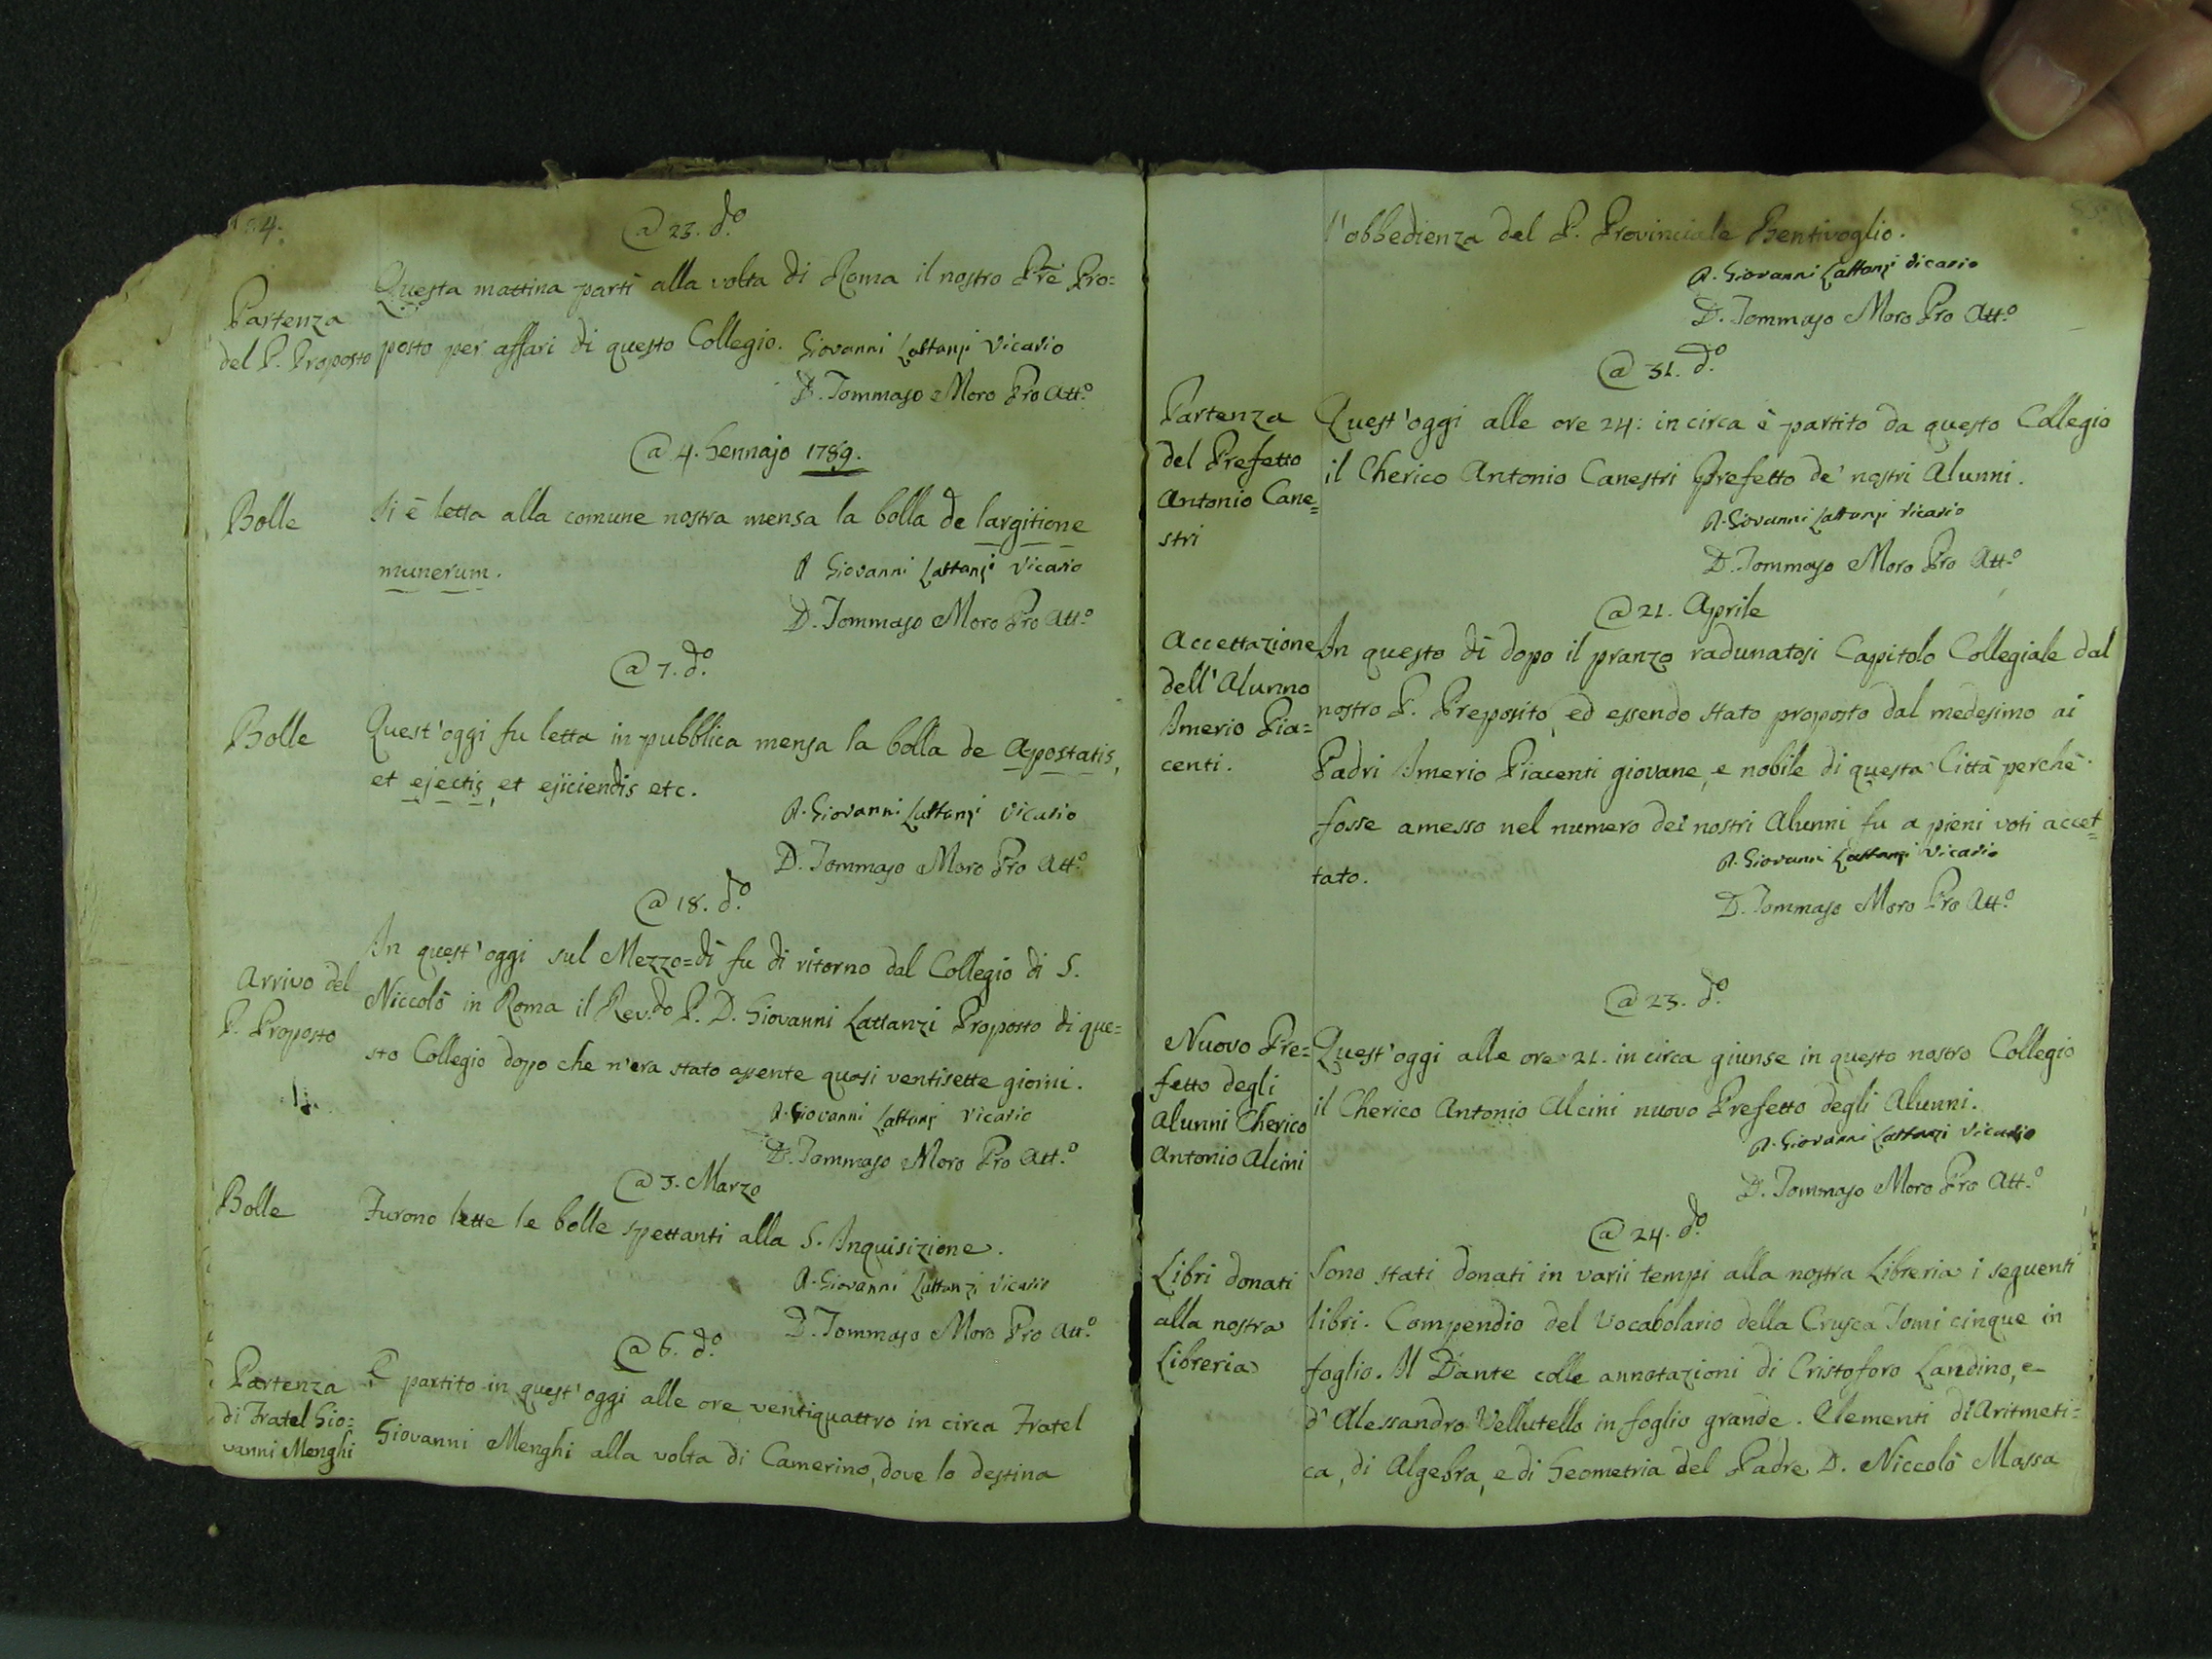 @ 23. d.º
Partenza
del P. Proposto
Questa mattina partì alla volta di Roma il nostro Pre Pro=
posto per affari di questo Collegio. Giovanni Lattanzi Vicario
D. Tommaso Moro Pro Att.º
@ 4. Gennajo 1789.
Bolle
Si è letta alla comune nostra mensa la bolla de largitione
munerum. P. Giovanni Lattanzi Vicario
D. Tommaso Moro Pro Att.º
@ 7. d.º
Bolle
Quest'oggi fu letta in pubblica mensa la bolla de Apostatis,
et ejectis, et ejiciendis etc.
P. Giovanni Lattanzi Vicario
D. Tommaso Moro Pro Att.º
@ 18. d.º
Arrivo del
P. Proposto
In quest'oggi sul Mezzo=dì fu di ritorno dal Collegio di S.
Niccolò in Roma il Rev.do P. D. Giovanni Lattanzi Proposto di que=
sto Collegio dopo che n'era stato assente quasi ventisette giorni.
P. Giovanni Lattanzi Vicario
D. Tommaso Moro Pro Att.º
@ 3. Marzo
Bolle
Furono lette le bolle spettanti alla S. Inquisizione.
P. Giovanni Lattanzi Vicario
D. Tommaso Moro Pro Att.º
@ 6. d.º
Partenza
di Fratel Gio=
vanni Menghi
È partito in quest'oggi alle ore ventiquattro in circa Fratel
Giovanni Menghi alla volta di Camerino, dove lo destina
l'obbedienza del P. Provinciale Bentivoglio.
P. Giovanni Lattanzi Vicario
D. Tommaso Moro Pro Att.º
@ 31. d.º
Partenza
del Prefetto
Antonio Cane=
stri
Quest'oggi alle ore 24: in circa è partito da questo Collegio
il Cherico Antonio Canestri Prefetto de' nostri Alunni.
P. Giovanni Lattanzi Vicario
D. Tommaso Moro Pro Att.º
@ 21. Aprile
Accettazione
dell'Alunno
Imerio Pia=
centi.
In questo dì dopo il pranzo radunatosi Capitolo Collegiale dal
nostro P. Preposito, ed essendo stato proposto dal medesimo ai
Padri Imerio Piacenti giovane, e nobile di questa Città perchè
fosse amesso nel numero dei nostri Alunni fu a pieni voti accet=
tato.
P. Giovanni Lattanzi Vicario
D. Tommaso Moro Pro Att.º
@ 23. d.º
Nuovo Pre=
fetto degli
Alunni Cherico
Antonio Alcini
Quest'oggi alle ore 21. in circa giunse in questo nostro Collegio
il Cherico Antonio Alcini nuovo Prefetto degli Alunni.
P. Giovanni Lattanzi Vicario
D. Tommaso Moro Pro Att.º
@ 24. d.º
Libri donati
alla nostra
Libreria
Sono stati donati in varii tempi alla nostra Libreria i seguenti
libri. Compendio del Vocabolario della Crusca Tomi cinque in
foglio. Il Dante colle annotazioni di Cristoforo Landino, e
d'Alessandro Vellutello in foglio grande. Elementi di Aritmeti=
ca, di Algebra, e di Geometria del Padre D. Niccolò Massa